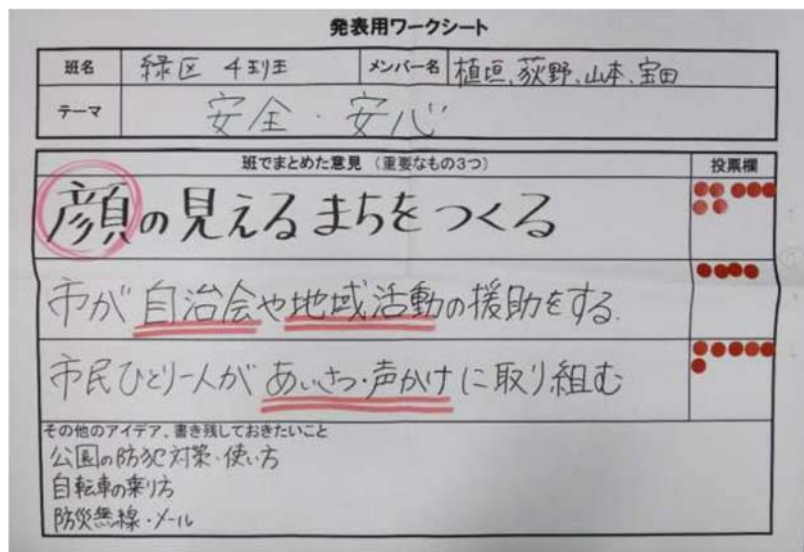 発表用ワークシート
班名 緑区 4班 メンバー名 植垣、荻野、山本、宝田
テーマ 安全・安心
班でまとめた意見（重要なもの3つ） 投票欄
顔の見えるまちをつくる
市が自治会や地域活動の援助をする.
市民ひとり一人があいさつ・声かけに取り組む
その他のアイデア、書き残しておきたいこと
公園の防犯対策・使い方
自転車の乗り方
防災無線・メール